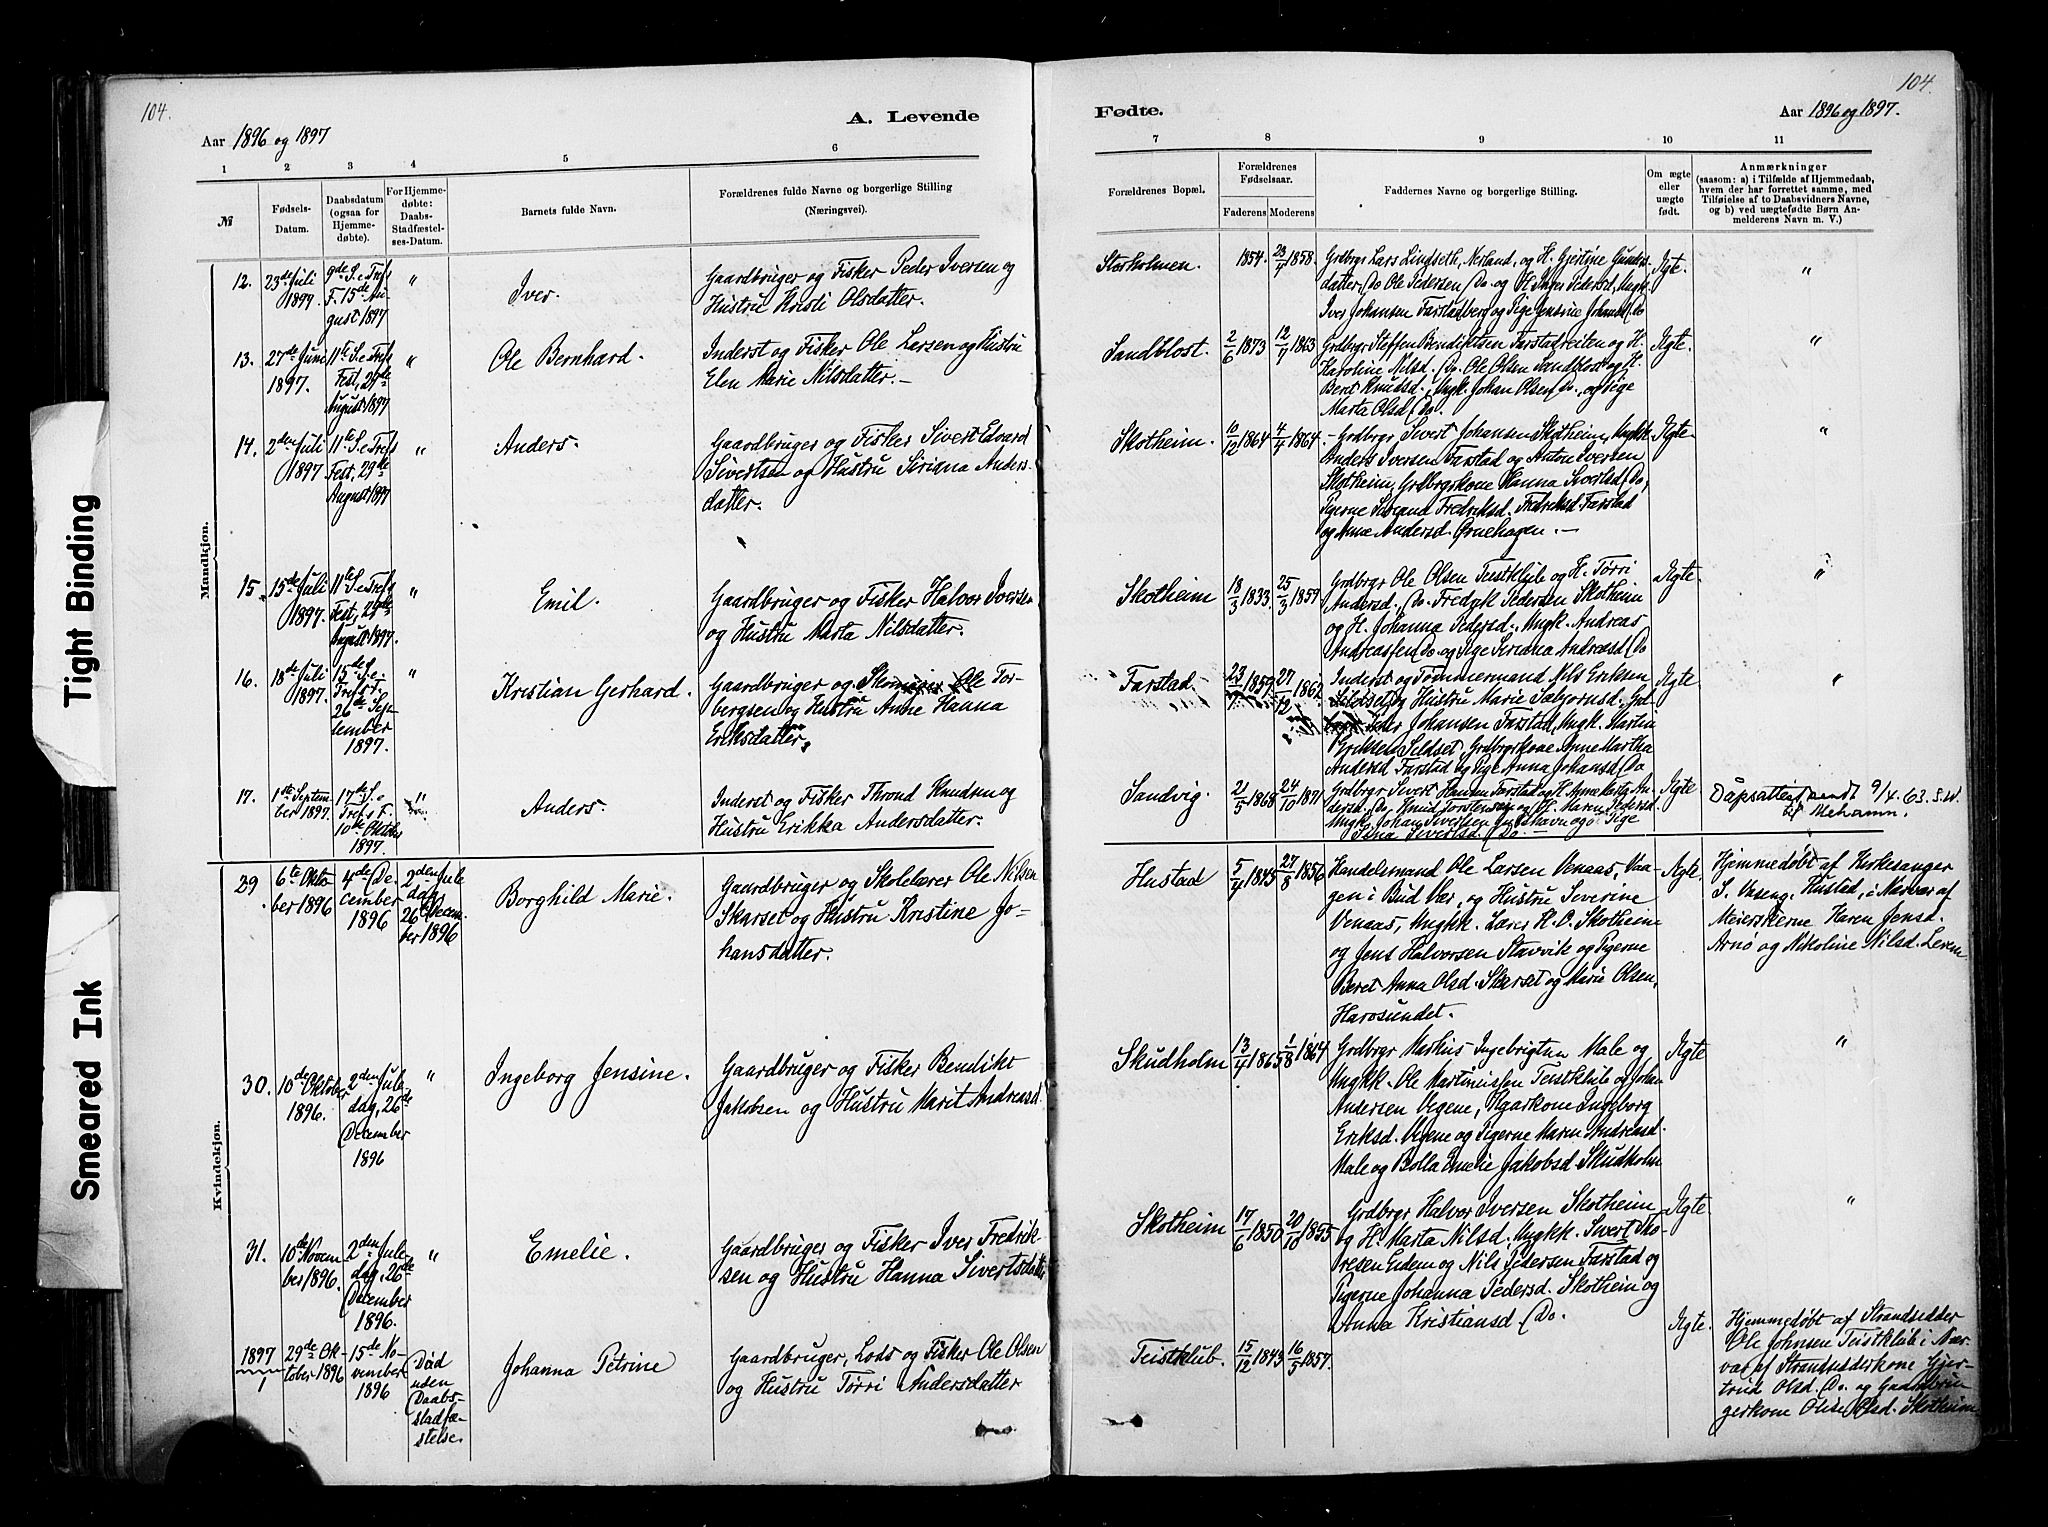 104.
104.
A. Levende
Fødte.
Aar 1896 og 1897
Aar 1896 og 1897.
1
2
3
4
5
6
7
8
9
10
11
№
Fødsels-
Datum.
Daabsdatum
(ogsaa for
Hjemme-
døbte).
For Hjemme-
døbte:
Daabs-
Stadfæstel-
ses-Datum.
Barnets fulde Navn.
Forældrenes fulde Navne og borgerlige Stilling
(Næringsvei).
Forældrenes Bopæl.
Forældrenes
Fødselsaar.
Faderens
Moderens
Faddernes Navne og borgerlige Stilling.
Om ægte
eller
uægte
født.
Anmærkninger
(saasom: a) i Tilfælde af Hjemmedaab,
hvem der har forrettet samme, med
Tilføielse af to Daabsvidners Navne,
og b) ved uægtefødte Børn An-
melderens Navn m. V.)
Mandkjøn.
12.
23de Juli
1897.
9de S. e. Tref.
F. 15de Au-
gust 1897
"
Iver.
Gaardbruger og Fisker Peder Iversen og
Hustru Kristi Olsdatter.
Storholmen.
1854.
23/4 1858.
Grdbrgr Lars Lindseth, Nerland, og H. Gjertine Gunders-
datter, Do Ole Pedersen Do. og H. Inger Pedersd, Ungk.
Iver Johansen Farstadberg og Pige Jensine Johansd Do
Ægte.
"
13.
27de Juni
1897.
11te S. e. Tref.
Fest, 29de
August 1897
"
Ole Bernhard.
Inderst og Fisker Ole Larsen og Hustru
Elen Marie Nilsdatter. —
Sandblost.
2/6 1873
12/4 1863
Grdbrgr Steffen Bendiktsen Farstadreiten og H.
Karoline Nilsd. Do. Ole Olsen Sandblost og H.
Beret Knudsd., Ungk. Johan Olsen Do., og Pige
Marta Olsd Do.
Ægte.
"
14.
2den Juli
1897
11te S. e. Tref.
Fest, 29de
August 1897
"
Anders.
Gaardbruger og Fisker Sivert Edvard
Sivertsen og Hustru Siriana Anders-
datter.
Skotheim.
10/12 1864
4/4 1864.
- Grdbrgr. Sivert Johansen Skotheim, Ungkk.
Anders Iversen Farstad og Anton Iversen
Skotheim, Grdbrgrkone Hanna Sivertsd Do,
Pigerne Fredriksd. Fredriksd. Farstad
og Anne Andersd. Gruehagen. —
Ægte.
"
15.
15de Juli
1897.
11te S. e. Tref.
Fest, 29de
August 1897.
"
Emil.
Gaardbruger og Fisker Halvor Iversen
og Hustru Marta Nilsdatter.
Skotheim
18/3 1833.
25/3 1857.
Grdbrgr Ole Olsen Teistklub og H. Torri
Andersd., Do. Fredrik Pedersen Skotheim
og H. Johanna Pedersd., Ungk. Andreas
Andreassen Do og Pige Seriana Andreasd Do
Ægte.
"
16.
18de Juli
1897.
15de S. e.
Tref. F.
26de Sep-
tember
1897.
"
Kristian Gerhard.
Gaardbruger og Ole Tor-
bergsen og Hustru Anne Hanna
Eriksdatter.
Farstad
23/7 1857
27/12 1862.
Inderst og Tømmermand Nils Eriksen
Sildset og Hustru Marie Sæbjørnsd. Grd-
Peder Johansen Farstad, Ungk. Martin
Eriksen Seldset, Grdbrgrkone Anne Martha
Andersd Farstad og Pige Anna Johansd Do
Ægte.
"
17.
1ste Septem-
ber 1897.
17de S. e.
Tref. F.
10de Oktober
1897.
"
Anders.
Inderst og Fisker Thrond Knudsen og
Hustru Erikka Andersdatter.
Sandvig.
2/5 1868
24/10 1871
Grdbrgr Sivert Hansen Farstad og H. Anne Marta An-
dersd. Do, Knud Torstensen og H. Maren Pedersd.
Ungk. Johan Sivertsen og Pige
Sina Sivertsd. Do. —
Ægte
Dåpsattest sendt 9/4. 63. S.W.
til Mehamn.
Kvindekjøn.
29
6te Okto-
ber 1896
4de De-
cember
1896
2den Jule-
dag,
26 Decem-
ber 1896
Borghild Marie.
Gaardbruger og Skolelærer Ole Nilsen
Skarset og Hustru Kristine Jo-
hansdatter.
Hustad
5/4 1845
27/8 1856
Handelsmand Ole Larsen Venaas, Vaa-
gen i Bud Vær, og Hustru Severine
Venaas, Ungkk. Lærer H. O. Skotheim
og Jens Halvorsen Stavvik og Pigerne
Beret Anna Olsd. Skarset og Marie Olsen,
Harøsundet.
Ægte.
Hjemmedøbt af Kirkesanger
S. Vaseng, Hustad, i Nærvær af
Meierskerne Karen Jensd.
Arnø og Nikoline Nilsd. Leren
30.
10de Oktober
1896.
2den Jule-
dag, 26de
December
1896
"
Ingeborg Jensine.
Gaardbruger og Fisker Bendikt
Jakobsen og Hustru Marit Andreasd.
Skudholm
13/4 1865
1/8 1864
Grdbrgr Markus Ingebrigtsen Male og
Ungkk. Ole Martinussen Teistklub og Johan
Andersen Vegene, Kone Ingeborg
Eriksd. Vegene og Pigerne Maren Andreasd.
Male og Bolla Emelie Jakobsd Skudholm
Ægte
"
31.
10de Novem-
ber 1896.
2den Jule-
dag, 26de
December
1896.
"
Emelie.
Gaardbruger og Fisker Iver Fredrik-
sen og Hustru Hanna Sivertsdatter
Skotheim
17/6 1850
20/10 1855
Grdbrgr Halvor Iversen Skotheim
og H. Marta Nilsd. Ungkk. Sivert To-
resen Eidem og Nils Pedersen Farstad og
Pigerne Johanna Pedersd. Skotheim og
Anna Kristiansd Do.
Ægte.
"
1897
1
29de Ok-
tober 1896
15de No-
vember
1896
Død
uden
Daabs-
stadfæ-
stelse.
Johanna Petrine
Gaardbruger, Lods og Fisker Ole Olsen
og Hustru Torri Andersdatter
Teistklub.
15/12 1843
16/5 1857.
Ægte.
Hjemmedøbt af Strandsidder
Ole Johnsen Teistklub i Nær-
vær af Strandsidderkone Gjer-
trud Olsd. Do. og Gaardbru-
gerkone Olise Olsd. Skotheim
Tight Binding
Smeared Ink